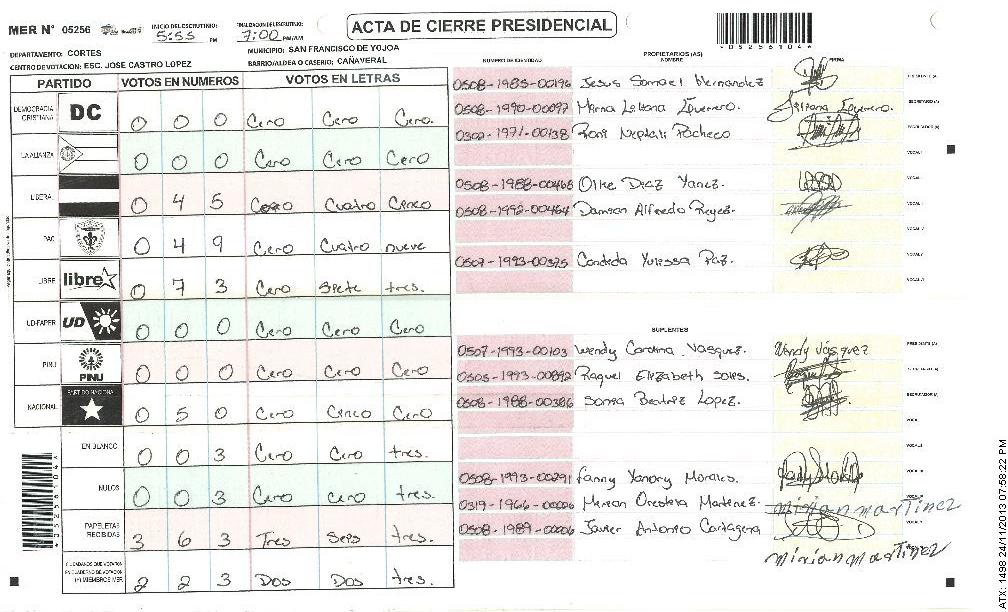 MER Nº 05256
INICIO DEL ESCRUTINIO:
5:55 PM
FINALIZACION ESCRUTINIO:
7:00 PM/AM
ACTA DE CIERRE PRESIDENCIAL
DEPARTAMENTO: CORTES
MUNICIPIO: SAN FRANCISCO DE YOJOA
CENTRO DE VOTACION: ESC. JOSE CASTRO LOPEZ
BARRIO/ALDEA O CASERIO: CAÑAVERAL
PARTIDO VOTOS EN NUMEROS VOTOS EN LETRAS
DEMOCRACIA CRISTIANA DC 0 0 0 Cero Cero Cero.
LA ALIANZA 0 0 0 Cero Cero Cero
LIBERAL 0 4 5 Cero Cuatro Cinco
PAC 0 4 9 Cero Cuatro nueve
LIBRE libre 0 7 3 Cero Siete tres.
UD-FAPER UD 0 0 0 Cero Cero Cero
PINU PINU 0 0 0 Cero Cero Cero
NACIONAL PARTIDO NACIONAL 0 5 0 Cero Cinco Cero
EN BLANCO 0 0 3 Cero Cero tres.
NULOS 0 0 3 Cero cero tres
PAPELETAS RECIBIDAS 3 6 3 Tres Seis tres.
CIUDADANOS QUE VOTARON EN CUADERNO DE VOTACION (Y) MIEMBROS MER 2 2 3 Dos Dos tres.
PROPIETARIOS (AS)
NUMERO DE IDENTIDAD NOMBRE FIRMA
0508-1985-00196 Jesus Samael Hernandez PRESIDENTE (A)
0508-1990-00097 Mirna Liliana Figuerero. SECRETARIO (A)
0302-1971-00138 Roni Neptali Pacheco ESCRUTADOR (A)
VOCAL I
0508-1988-00468 Olke Diaz Yanez.
0508-1992-00464 Damian Alfredo Reyes.
0507-1993-00325 Candida Yulissa Paz.
SUPLENTES
0507-1993-00103 Wendy Carolina Vasquez. Wendy Vásquez PRESIDENTE (A)
0505-1993-00892 Raquel Elizabeth Soles. SECRETARIO (A)
0508-1988-00386 Sonia Beatriz Lopez. ESCRUTADOR (A)
0508-1993-00291 Fanny Yanory Morales.
0319-1966-00006 Mirian Orestera Martinez. mirian martinez
0508-1989-00006 Javier Antonio Cartagena
mirian martinez
ATX: 1498 24/11/2013 07:58:22 PM